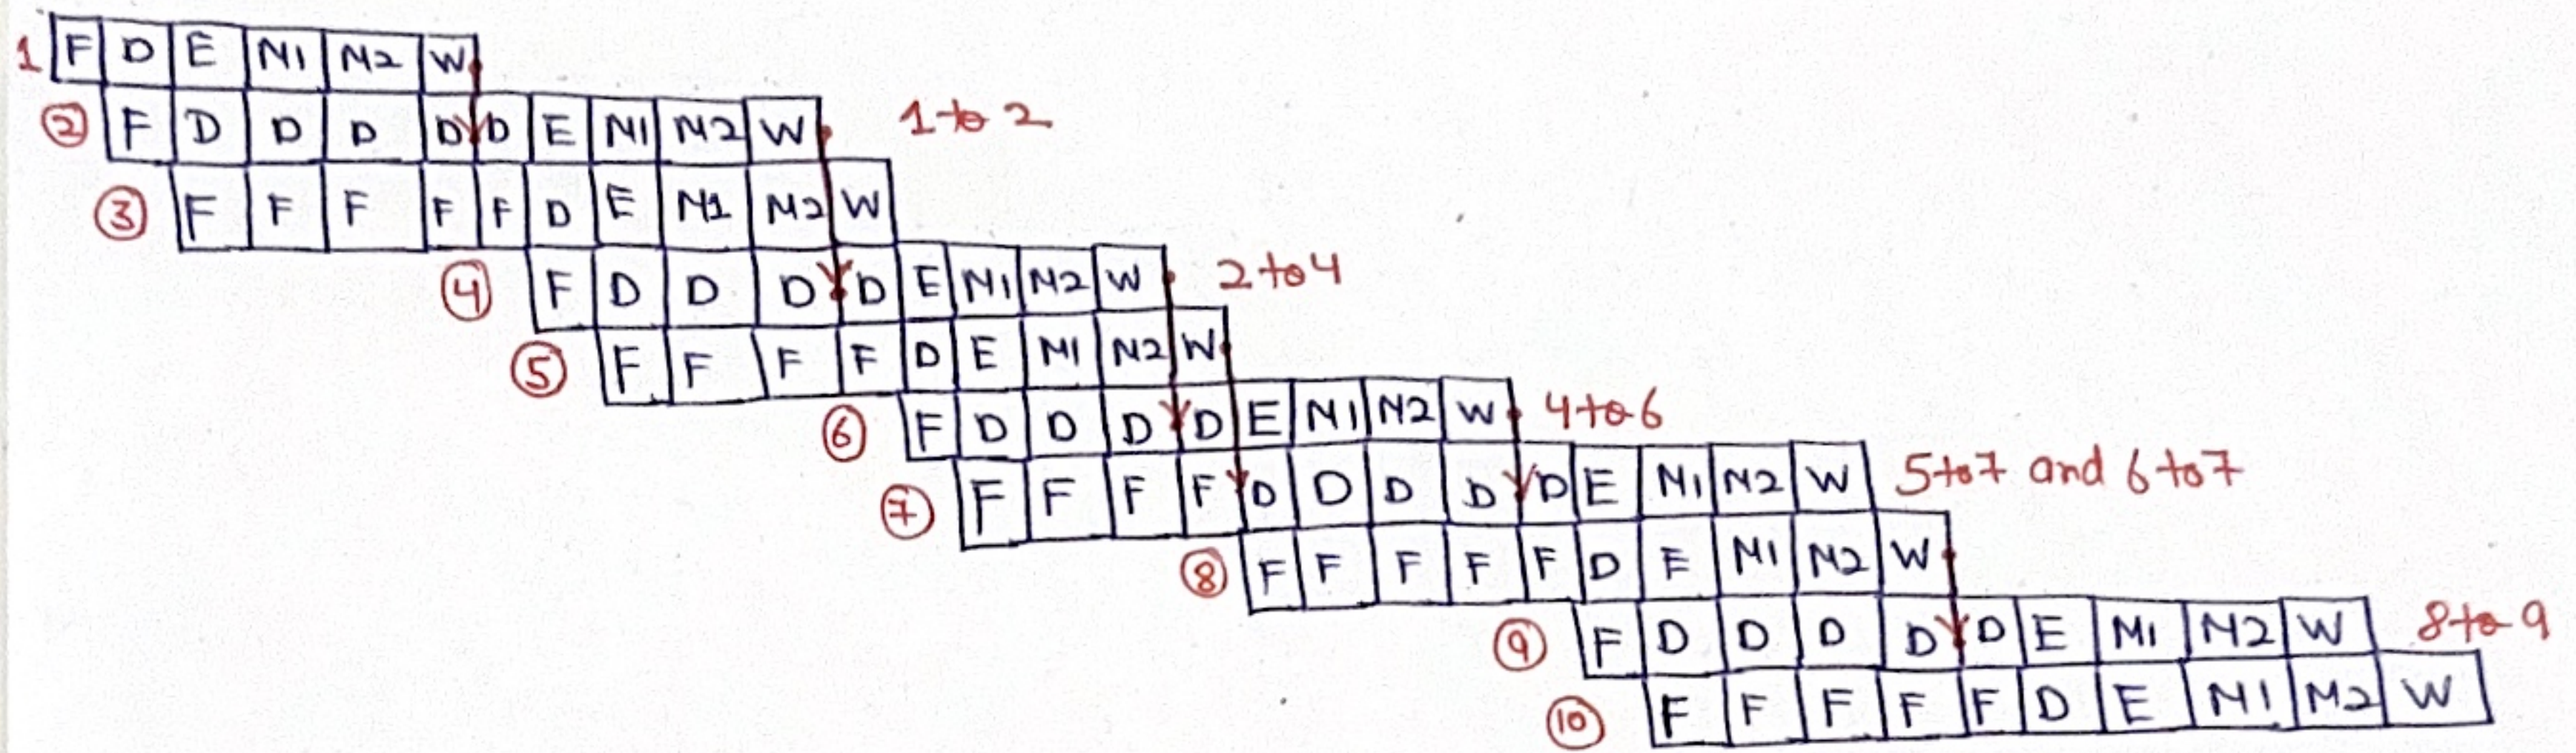 1 F D E M1 M2 W
2 F D D D D D E M1 M2 W 1 to 2
3 F F F F F D E M1 M2 W
4 F D D D D E M1 M2 W 2 to 4
5 F F F F D E M1 M2 W
6 F D D D D E M1 M2 W 4 to 6
7 F F F F D D D D D E M1 M2 W 5 to 7 and 6 to 7
8 F F F F F D E M1 M2 W
9 F D D D D D E M1 M2 W 8 to 9
10 F F F F F D E M1 M2 W